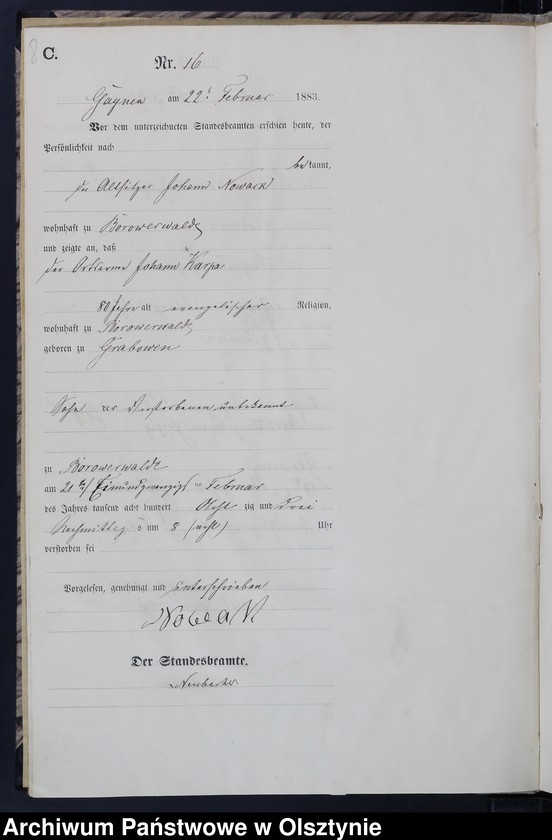 8
C.
Nr. 16
am 22t Februar 1883.
Vor dem unterzeichneten Standesbeamten erschien heute, der
Persönlichkeit nach
bekannt,
der Altsitzer Johann Nowack
wohnhaft zu Borowerwalde
und zeigte an, daß
der Ortsarme Johann Karpa
80 Jahre alt evangelischer Religion,
wohnhaft zu Borowerwalde
geboren zu Grabowen
Sohn der Verstorbenen, unbekannt
zu Borowerwalde
am 21ten / Einundzwanzigt ten Februar
des Jahres tausend acht hundert Acht zig und drei
Nachmittag s um 8 (acht) Uhr
verstorben sei
Vorgelesen, genehmigt und unterschrieben
Nowak
Der Standesbeamte.
Archiwum Państwowe w Olsztynie